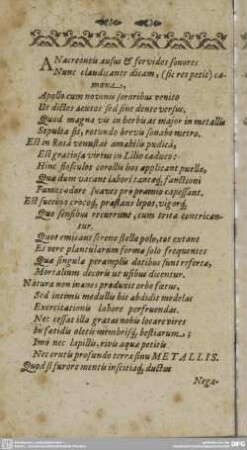 ANacreontis ausus & fervidos sonores
Nunc claudicante dicam, (sic res petit) ca-
mœna,
Apollo cum novenis sororibus venito
Ut dictes acutos sed sine dente versus,
Quod magna vis in herbis at major in metallis
Sepulta sit, rotundo brevu sonabo metro.
Est in Rosâ venustas amabilis pudica,
Est gratiosa virtus in Lilio caduco:
Hinc flosculos corollis hos applicant puellæ,
Quæ dum vacant labori tantoq; functioni
Fumos odore suaves pro præmio capessant.
Est succino crocoq; præstans lepos, vigorq;
Quo sensibus recurrunt, cum trita contrican-
tur.
Quot emicant sereno stellæ polo, tot extant
Et vere plantularum formæ solo frequentes
Quæ singula peramplis dotibus sunt referta,
Mortalium decoris ut usibus dicentur.
Natura non inanes produxit orbe fœtus,
Sed intimis medullis his abdidit medelas
Exercitationis labore perfruendas.
Nec cessat illa gratas nobis locare vires
In fœtidis oletis membrisq; bestiarum;
Imò nec lapillis, rivis aqua petitis
Nec erutis profundo terræ sinu METALLIS.
Quod si furore mentis inscitiaq; ductus
Nega-